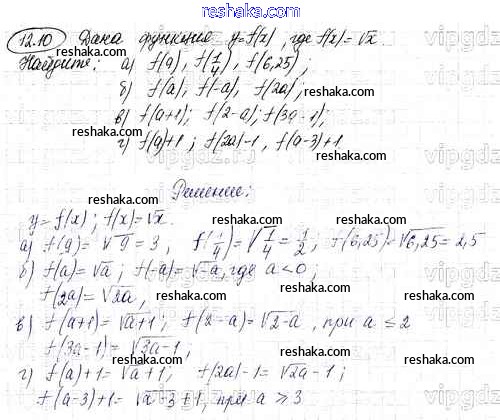 reshaka.com
12.10 Дана функция y=f(x), где f(x)=√x.
Найдите: а) f(9), f(1/4), f(6,25);
б) f(a), f(-a), f(2a);
в) f(a+1); f(2-a); f(3a-1);
г) f(a)+1; f(2a)-1, f(a-3)+1
Решение:
y=f(x); f(x)=√x.
а) f(9)=√9=3, f(1/4)=√1/4=1/2, f(6,25)=√6,25=2,5
б) f(a)=√a; f(-a)=√-a, где a<0;
f(2a)=√2a,
в) f(a+1)=√a+1; f(2-a)=√2-a, при a≤2
f(3a-1)=√3a-1;
г) f(a)+1=√a+1; f(2a)-1=√2a-1;
f(a-3)+1=√a-3+1, при a≥3